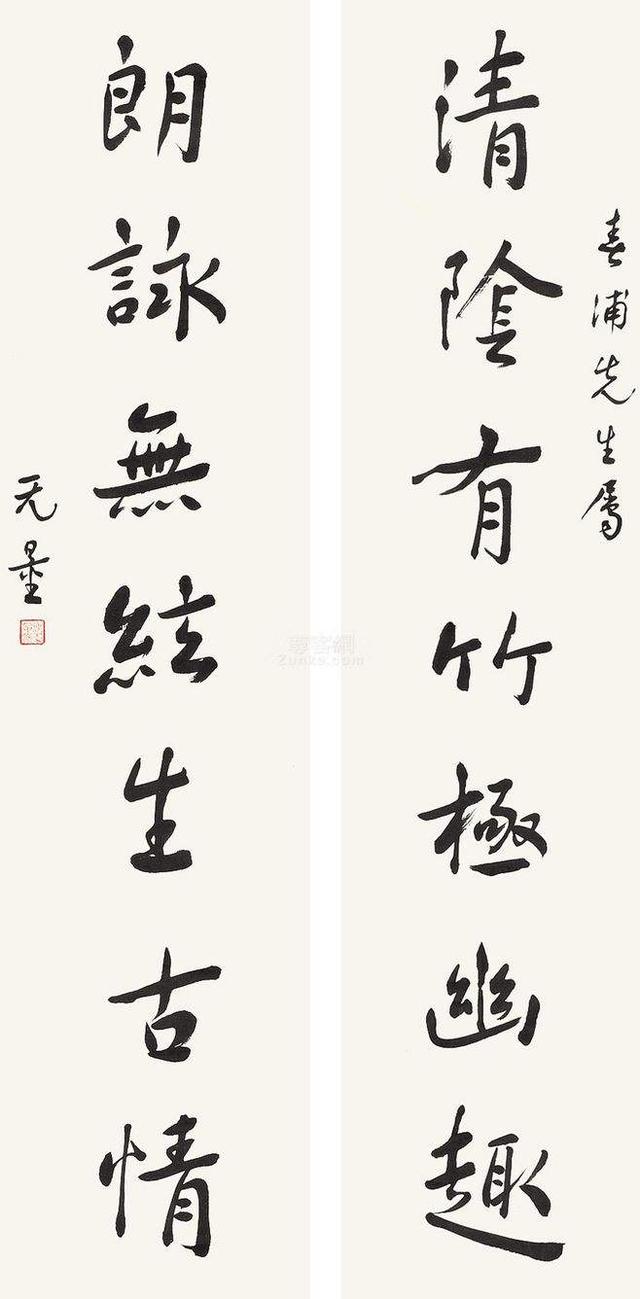 春浦先生屬
清陰有竹極幽趣
朗詠無絃生古情
无量
尊客網
Zunke.com